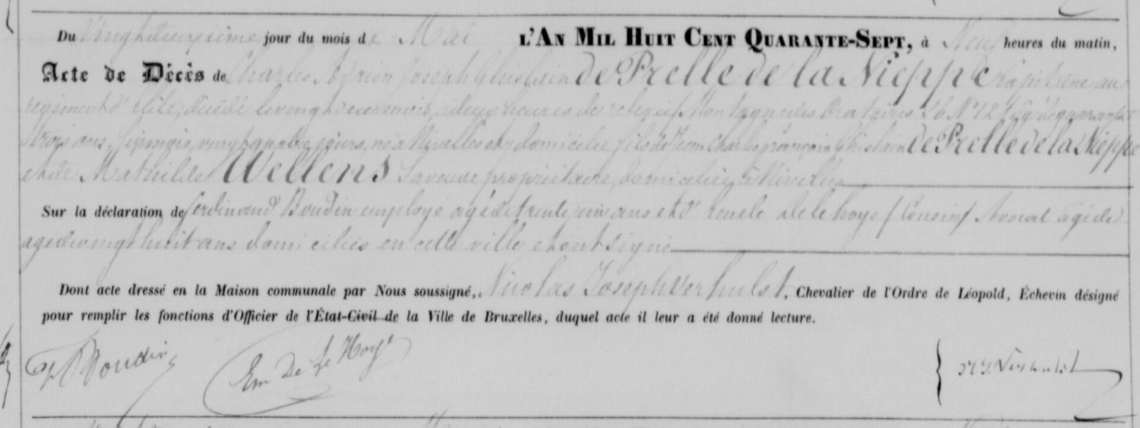 Du Vingt deuxième jour du mois de Mai L'An Mil Huit Cent Quarante-Sept, à Neuf heures du matin,
Acte de Décès de Charles Adrien Joseph Ghislain de Prelle de la Nieppe Capitaine au
régiment d'élite, décédé le vingt de ce mois, à deux heures de relevée Montagne des Oratoires N° 12 âgé de quarante
trois ans, mois, vingt quatre jours, né à Nivelles et y domicilié, fils de Jean Charles François Ghislain de Prelle de la Nieppe
et de Mathilde Wellens Sa veuve propriétaire, domiciliée à Nivelles
Sur la déclaration de Ferdinand Boudin employé âgé de trente un ans et d' Emile Delehoye Cousin Avocat âgé de
âgé de vingt huit ans domiciliés en cette ville et ont signé
Dont acte dressé en la Maison communale par Nous soussigné, Nicolas Joseph Verhulst, Chevalier de l'Ordre de Léopold, Échevin désigné
pour remplir les fonctions d'Officier de l'État-Civil de la Ville de Bruxelles, duquel acte il leur a été donné lecture.
F Boudin Em De Le Hoye N J Verhulst